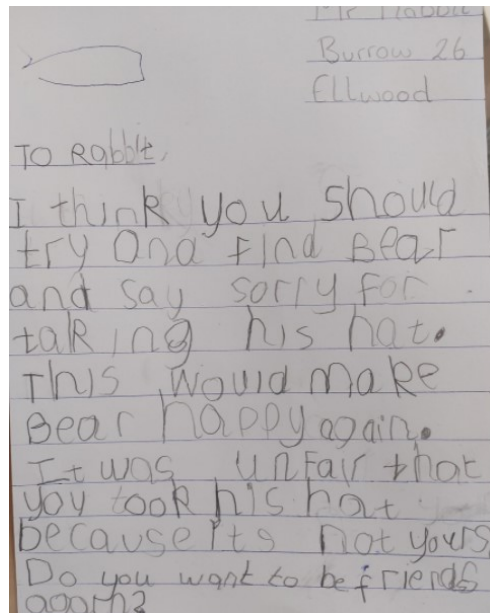 Mr Rabbit
Burrow 26
Ellwood
To Rabbit,
I think you should
try and find Bear
and say sorry for
taking his hat.
This would make
Bear happy again.
It was unfair that
you took his hat
because its not yours
Do you want to be friends
again?